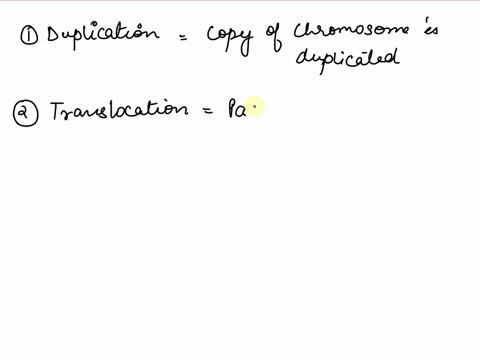 ① Duplication = Copy of chromosome is
duplicated
② Translocation = Pa